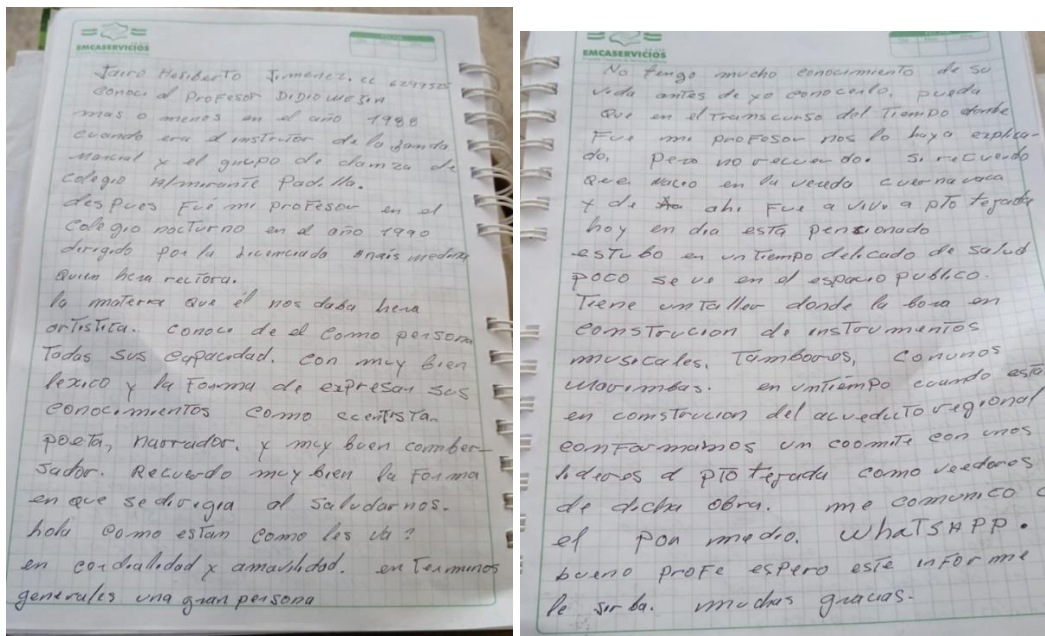 EMCASERVICIOS
Jairo Heriberto Jimenez. cc 6297525
conoci al Profesor DIDIO
mas o menos en el año 1988
cuando era el instructor de la banda
marcial y el grupo de damza de
colegio Almirante Padilla.
despues Fué mi profesor en el
Colegio nocturno en el año 1990
dirigido por la licenciada anais medina
Quien hera rectora.
la materia que él nos daba hera
artistica. conoci de el como persona
Todas sus capacidad. con muy bien
lexico y la Forma de expresar sus
conocimientos como ccentista.
poeta, narrador. y muy buen comber-
sador. Recuerdo muy bien la Forma
en que se dirigia al saludarnos.
hola como estan como les va?
en cordialidad y amavilidad. en Terminos
generales una gran persona
EMCASERVICIOS
No tengo mucho conocimiento de su
vida antes de yo conocerlo, pueda
que en el Transcurso del Tiempo donde
Fue mi profesor nos lo haya explica-
do, pero no recuerdo. si recuerdo
que nacio en la vereda cuernavaca
y de ahi Fue a vivir a pto tejada
hoy en dia está pensionado
estubo en un Tiempo delicado de salud
poco se ve en el espacio publico.
Tiene un Taller donde labora en
construcion de instrumentos
musicales, Tambores, conunos
marimbas. en un tiempo cuando está
en construcion del acueducto regional
conformamos un coomite con unos
lideres d pto tejada como veedores
de dicha obra. me comunico c
el por medio. WhaTSAPP.
bueno profe espero este informe
le sirba. muchas gracias.